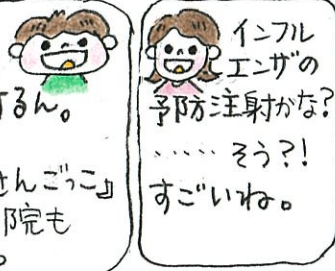 するん。
さんごっこ』
院も
。
インフル
エンザの
予防注射かな?
…… そう?!
すごいね。